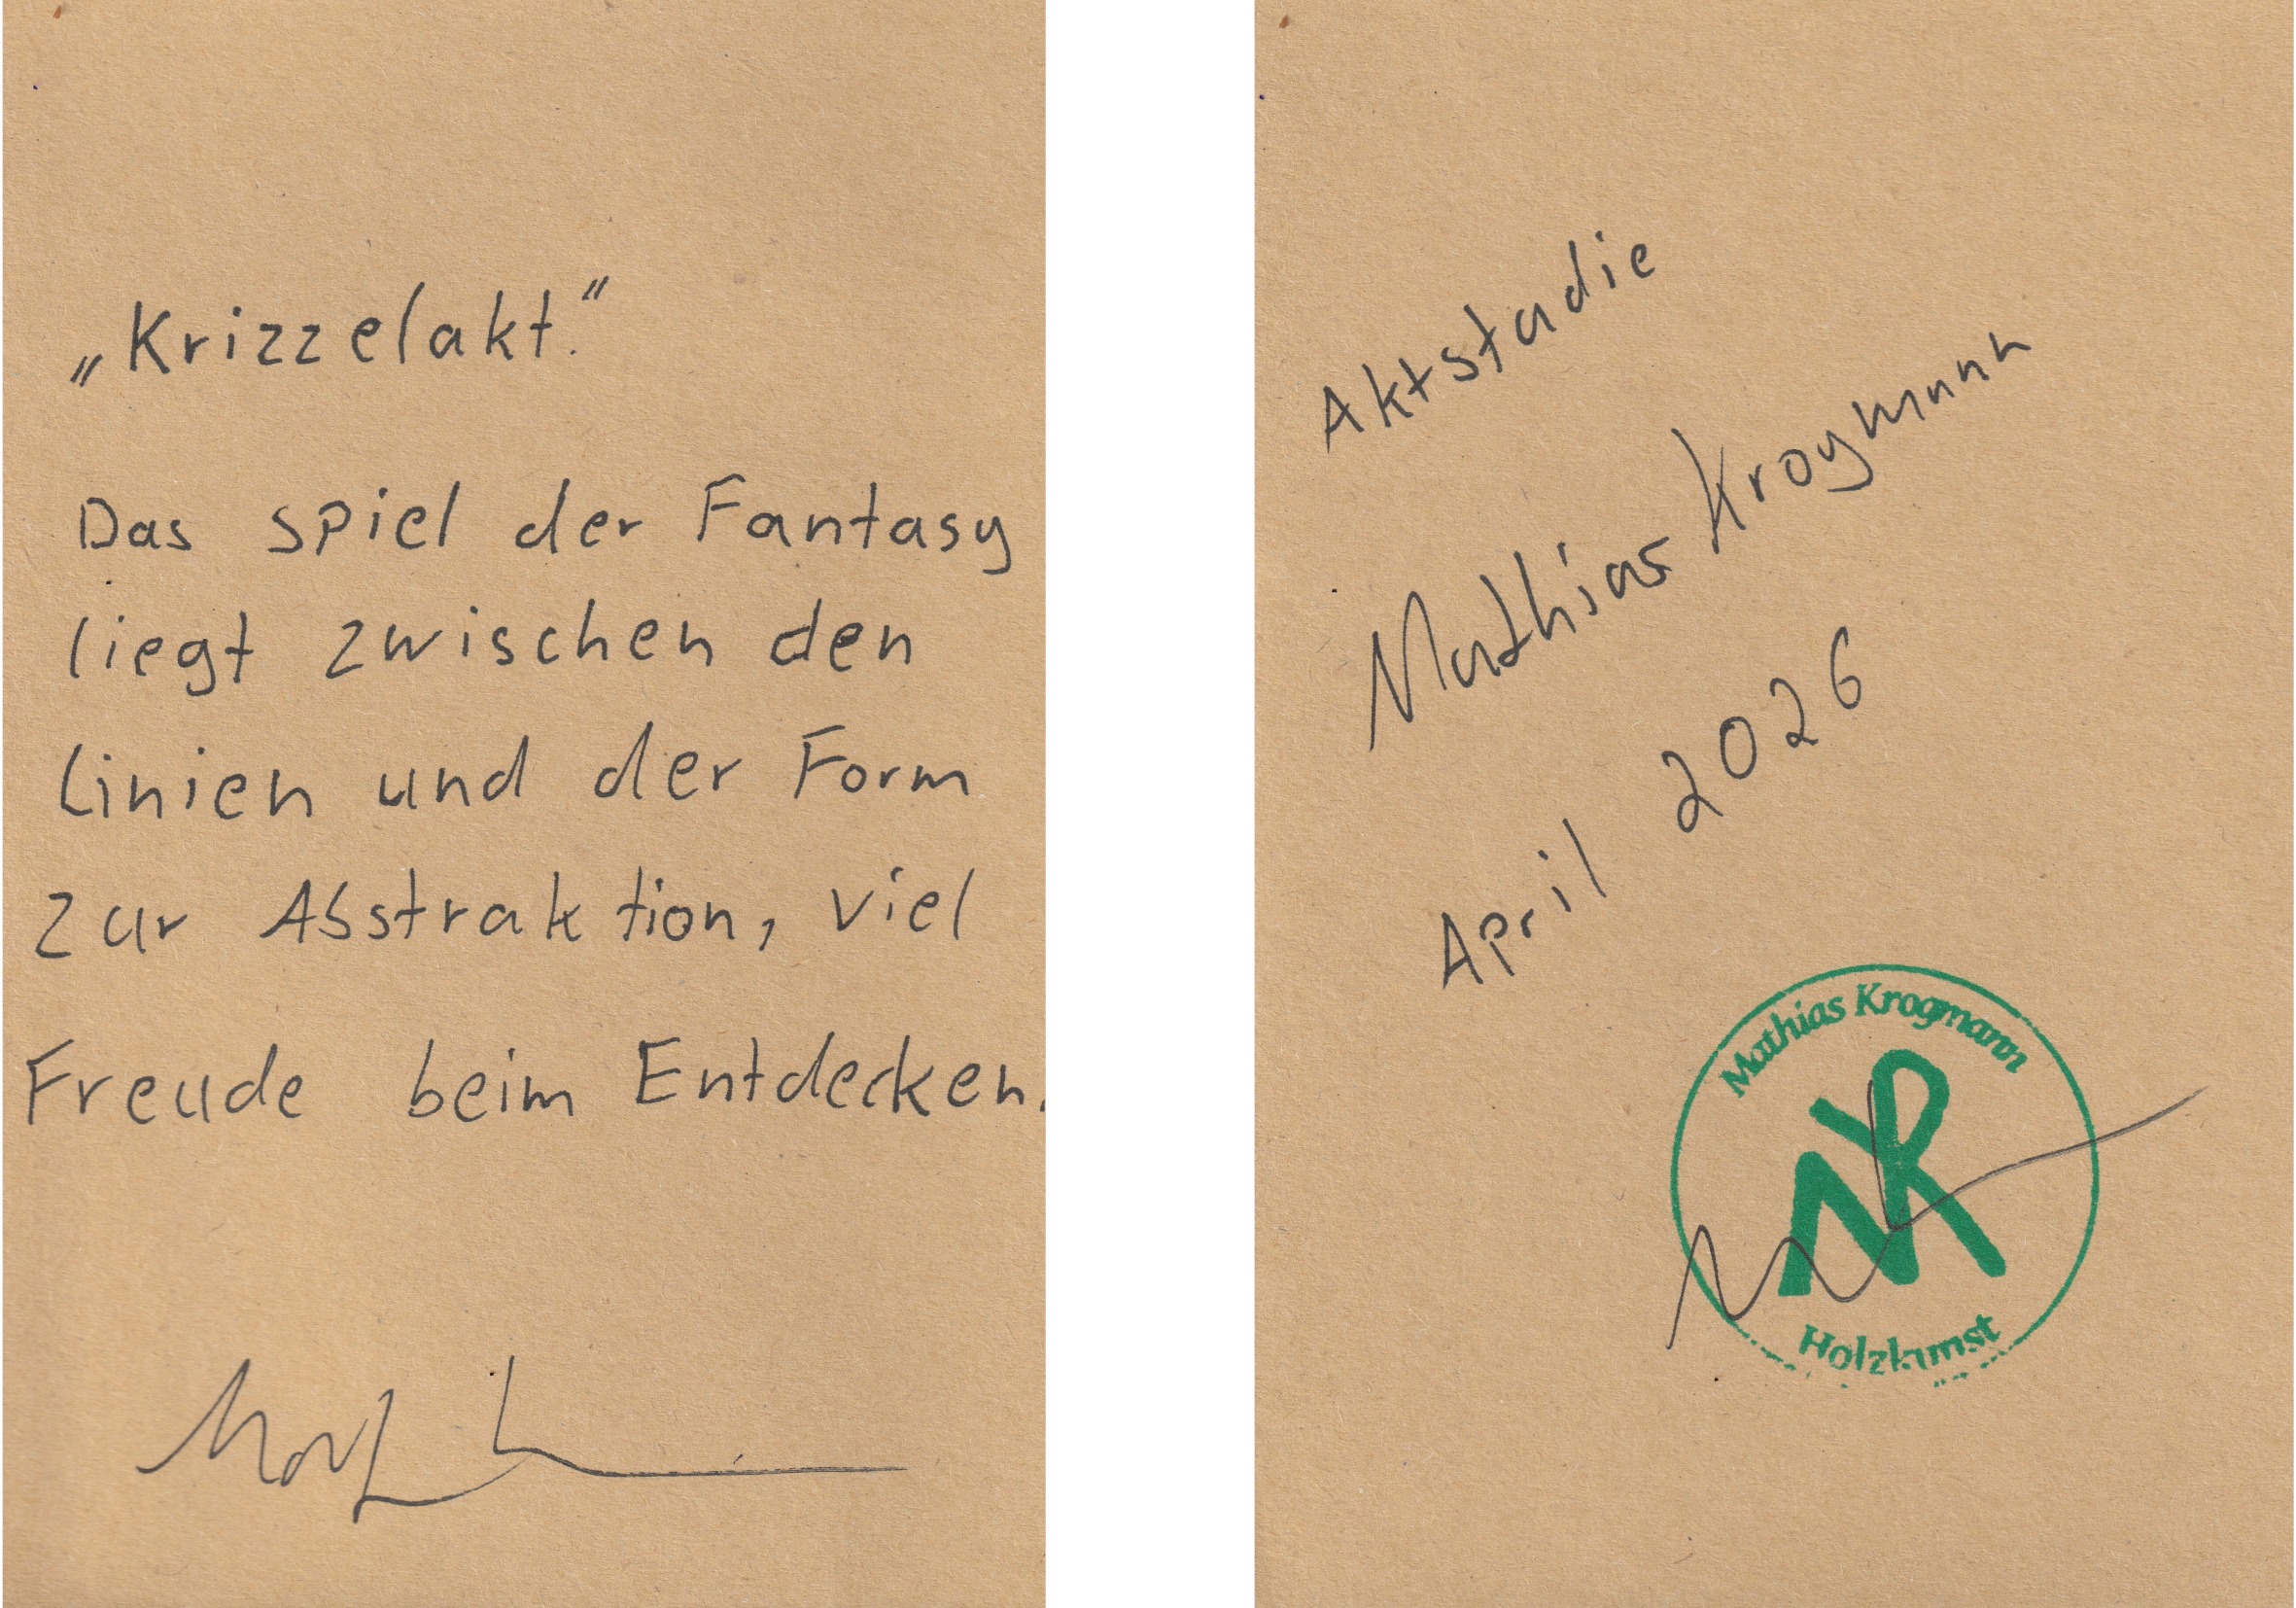 „Krizzelakt."
Das spiel der Fantasy
liegt zwischen den
Linien und der Form
zur Abstraktion, viel
Freude beim Entdecken.
Aktstudie
Mathias Krogmann
April 2026
Mathias Krogmann
MK
Holzkunst